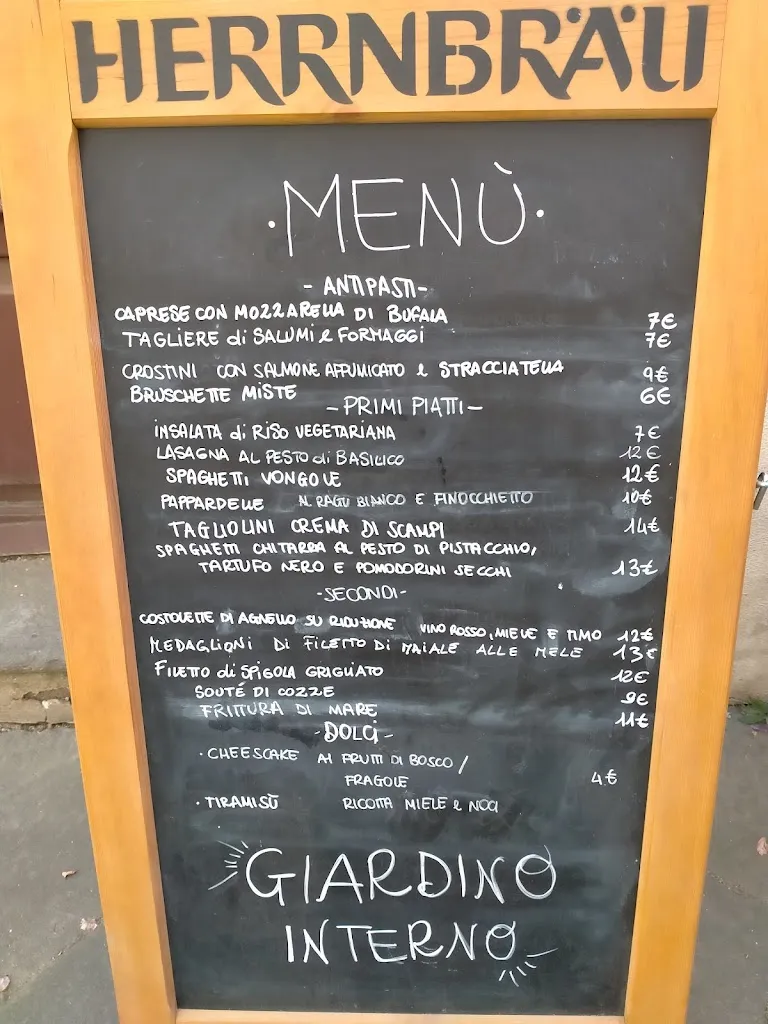 HERRNBRÄU
·MENÙ·
- ANTIPASTI -
CAPRESE CON MOZZARELLA DI BUFALA 7€
TAGLIERE di SALUMI e FORMAGGI 7€
CROSTINI CON SALMONE AFFUMICATO e STRACCIATELLA 9€
BRUSCHETTE MISTE 6€
- PRIMI PIATTI -
INSALATA di RISO VEGETARIANA 7€
LASAGNA AL PESTO di BASILICO 12€
SPAGHETTI VONGOLE 12€
PAPPARDELLE AL RAGU BIANCO E FINOCCHIETTO 10€
TAGLIOLINI CREMA DI SCAMPI 14€
SPAGHETTI CHITARRA AL PESTO DI PISTACCHIO,
TARTUFO NERO E POMODORINI SECCHI 13€
- SECONDI -
COSTOLETTE DI AGNELLO SU RIDUZIONE VINO ROSSO, MIELE E TIMO 12€
MEDAGLIONI DI FILETTO DI MAIALE ALLE MELE 13€
FILETTO di SPIGOLA GRIGLIATO 12€
SOUTÉ DI COZZE 9€
FRITTURA DI MARE 11€
- DOLCI -
· CHEESCAKE AI FRUTTI DI BOSCO /
FRAGOLE 4€
· TIRAMISÙ RICOTTA MIELE e NOCI
GIARDINO
INTERNO